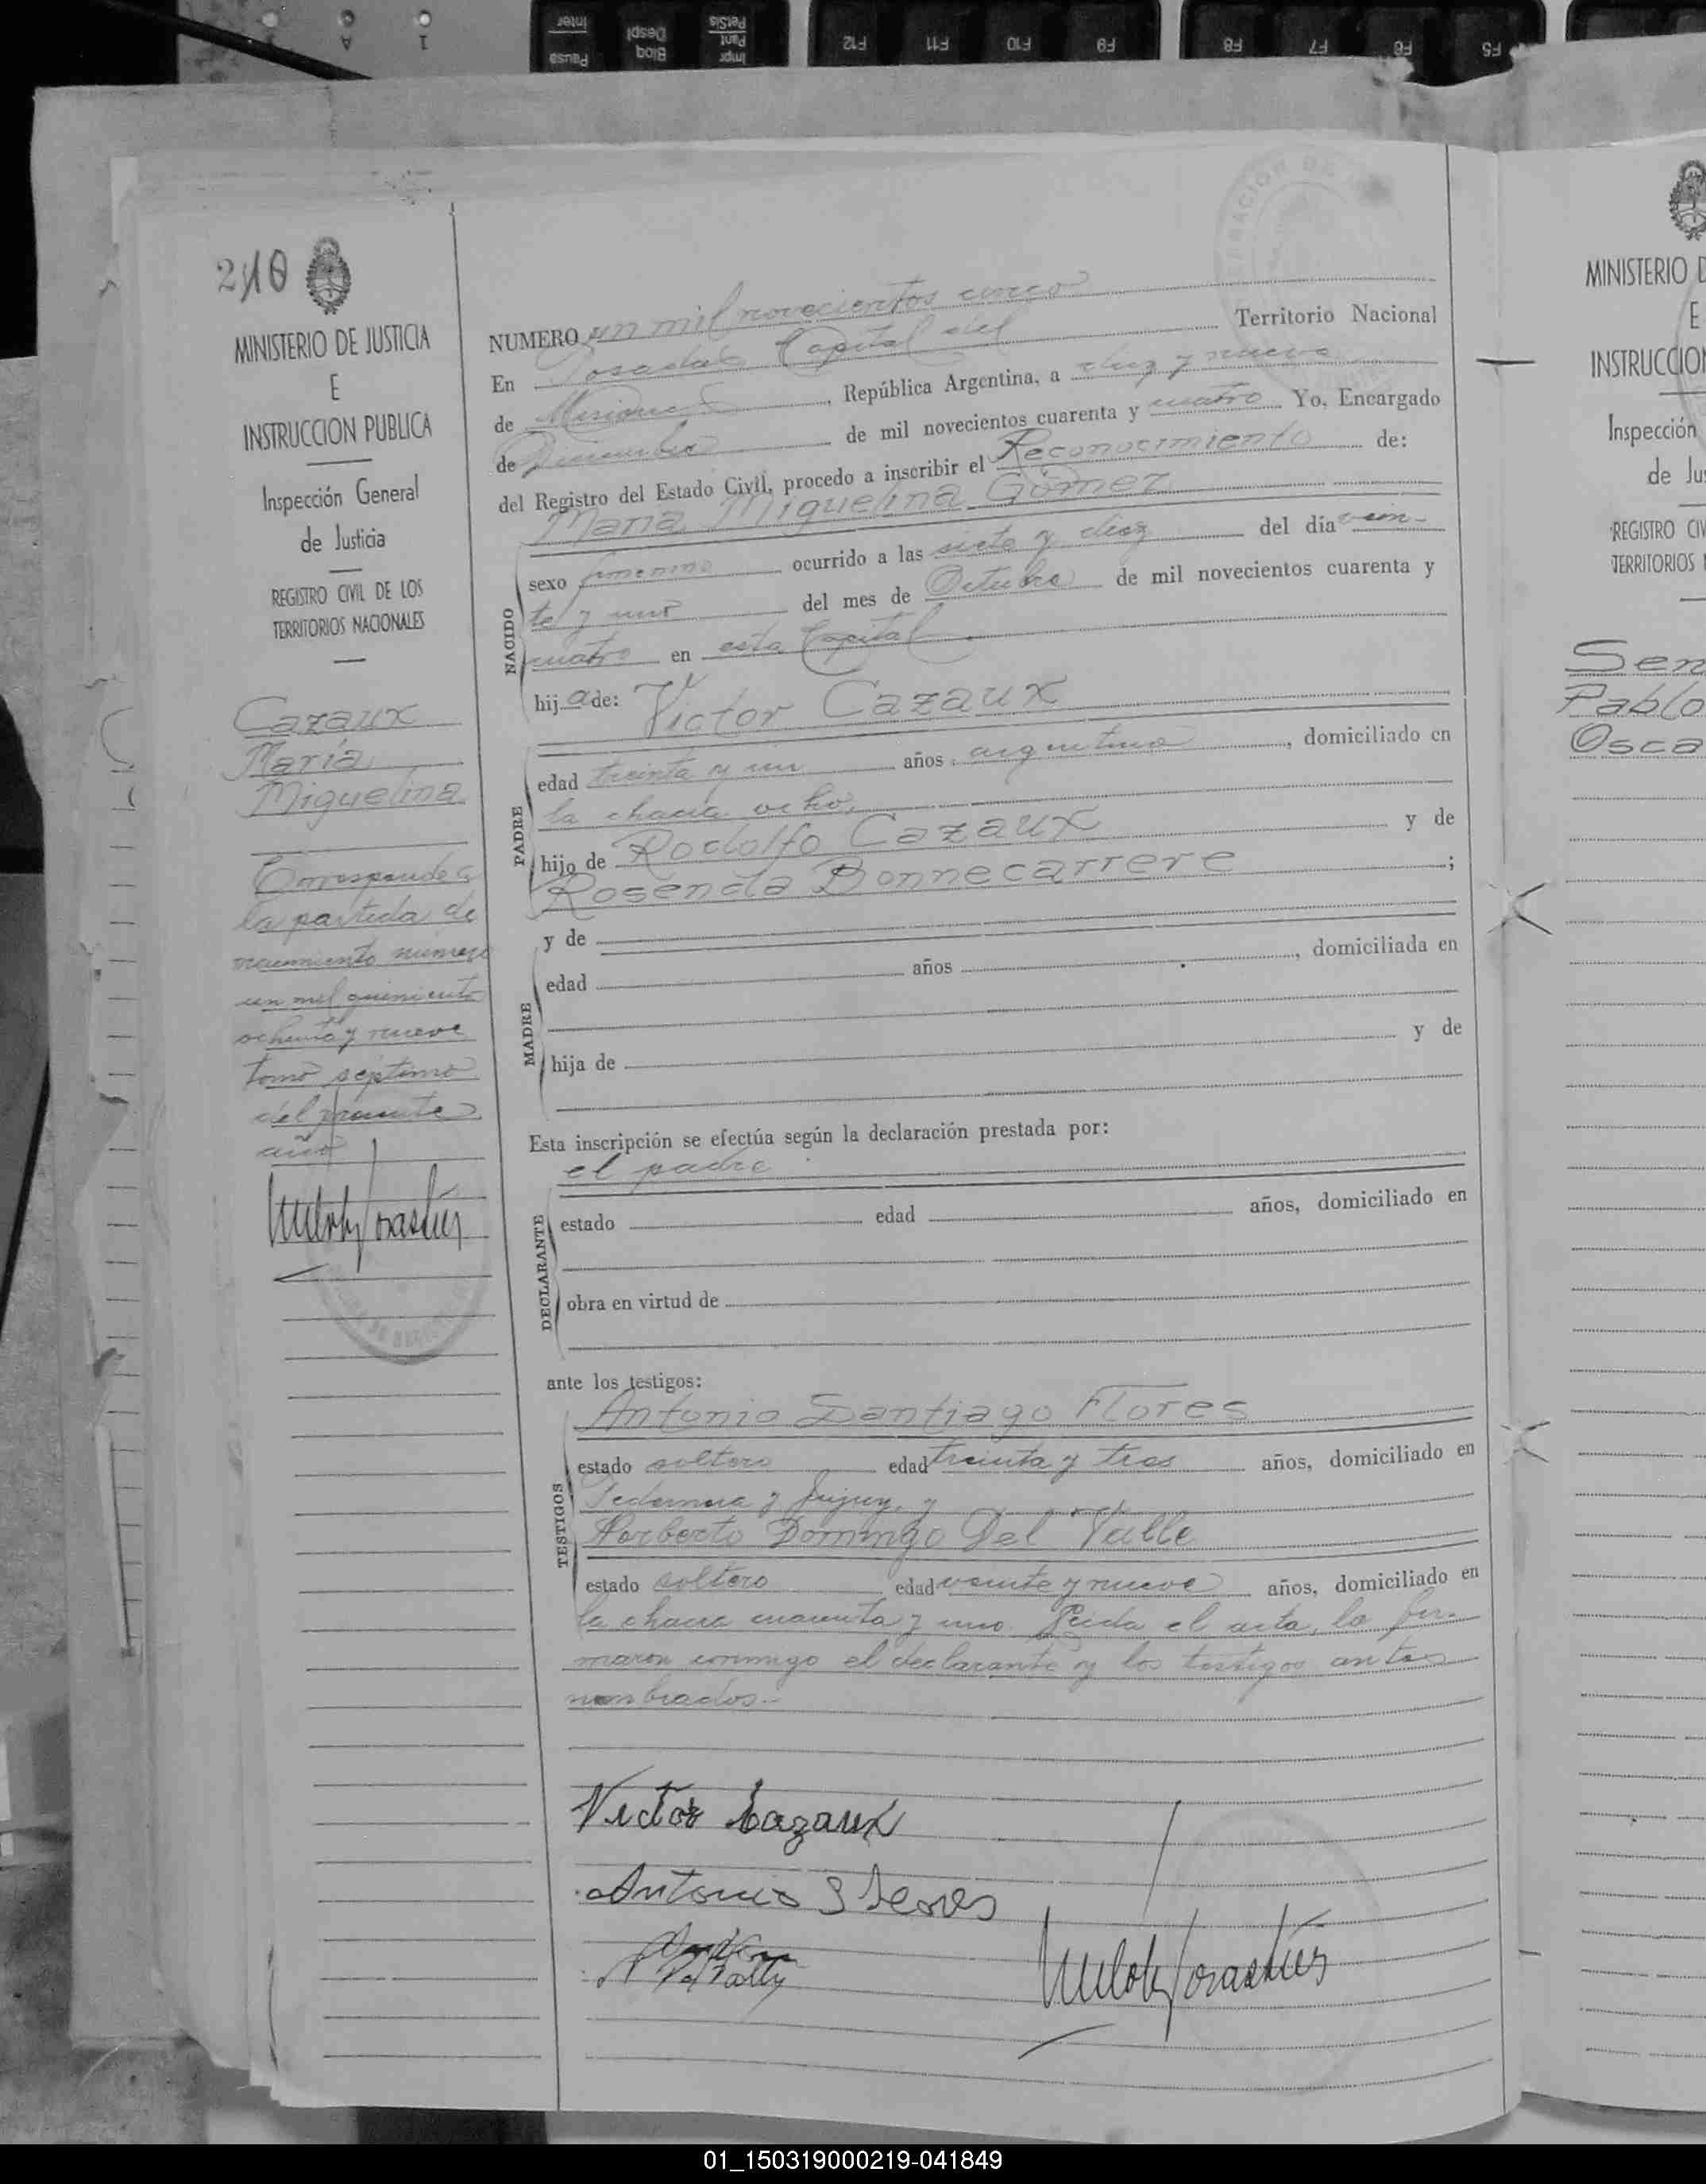 Inter
Pausa
Despl
Bloq
PetSis
Pant
Impr
F12
F11
F10
F9
F8
F7
F6
F5
A
1
210
MINISTERIO DE JUSTICIA
E
INSTRUCCION PUBLICA
Inspección General
de Justicia
REGISTRO CIVIL DE LOS
TERRITORIOS NACIONALES
Cazaux
María
Miguelina
Corresponde a
la partida de
nacimiento número
un mil quinientos
ochenta y nueve
tomo séptimo
del presente
año
NUMERO un mil novecientos cinco
En Posadas Capital del Territorio Nacional
de Misiones, República Argentina, a diez y nueve
de Diciembre de mil novecientos cuarenta y cuatro Yo, Encargado
del Registro del Estado Civil, procedo a inscribir el Reconocimiento de:
María Miguelina Gómez
NACIDO
sexo femenino ocurrido a las siete y diez del día vein-
te y uno del mes de Octubre de mil novecientos cuarenta y
cuatro en esta Capital.
hija de: Victor Cazaux
PADRE
edad treinta y un años, argentino, domiciliado en
la chacra ocho,
hijo de Rodolfo Cazaux y de
Rosenda Bonnecarrere ;
MADRE
y de
edad años , domiciliada en
hija de y de
Esta inscripción se efectúa según la declaración prestada por:
el padre
DECLARANTE
estado edad años, domiciliado en
obra en virtud de
ante los testigos:
TESTIGOS
Antonio Santiago Flores
estado soltero edad treinta y tres años, domiciliado en
Pedernera y Jujuy, y
Norberto Domingo Del Valle
estado soltero edad veinte y nueve años, domiciliado en
la chacra cuarenta y uno. Leida el acta, la fir-
maron conmigo el declarante y los testigos antes
nombrados.-
Victor Cazaux
Antonio S Flores
MINISTERIO D
E
INSTRUCCION
Inspección
de Jus
REGISTRO CIV
TERRITORIOS
Sen
Pablo
Osca
01_150319000219-041849